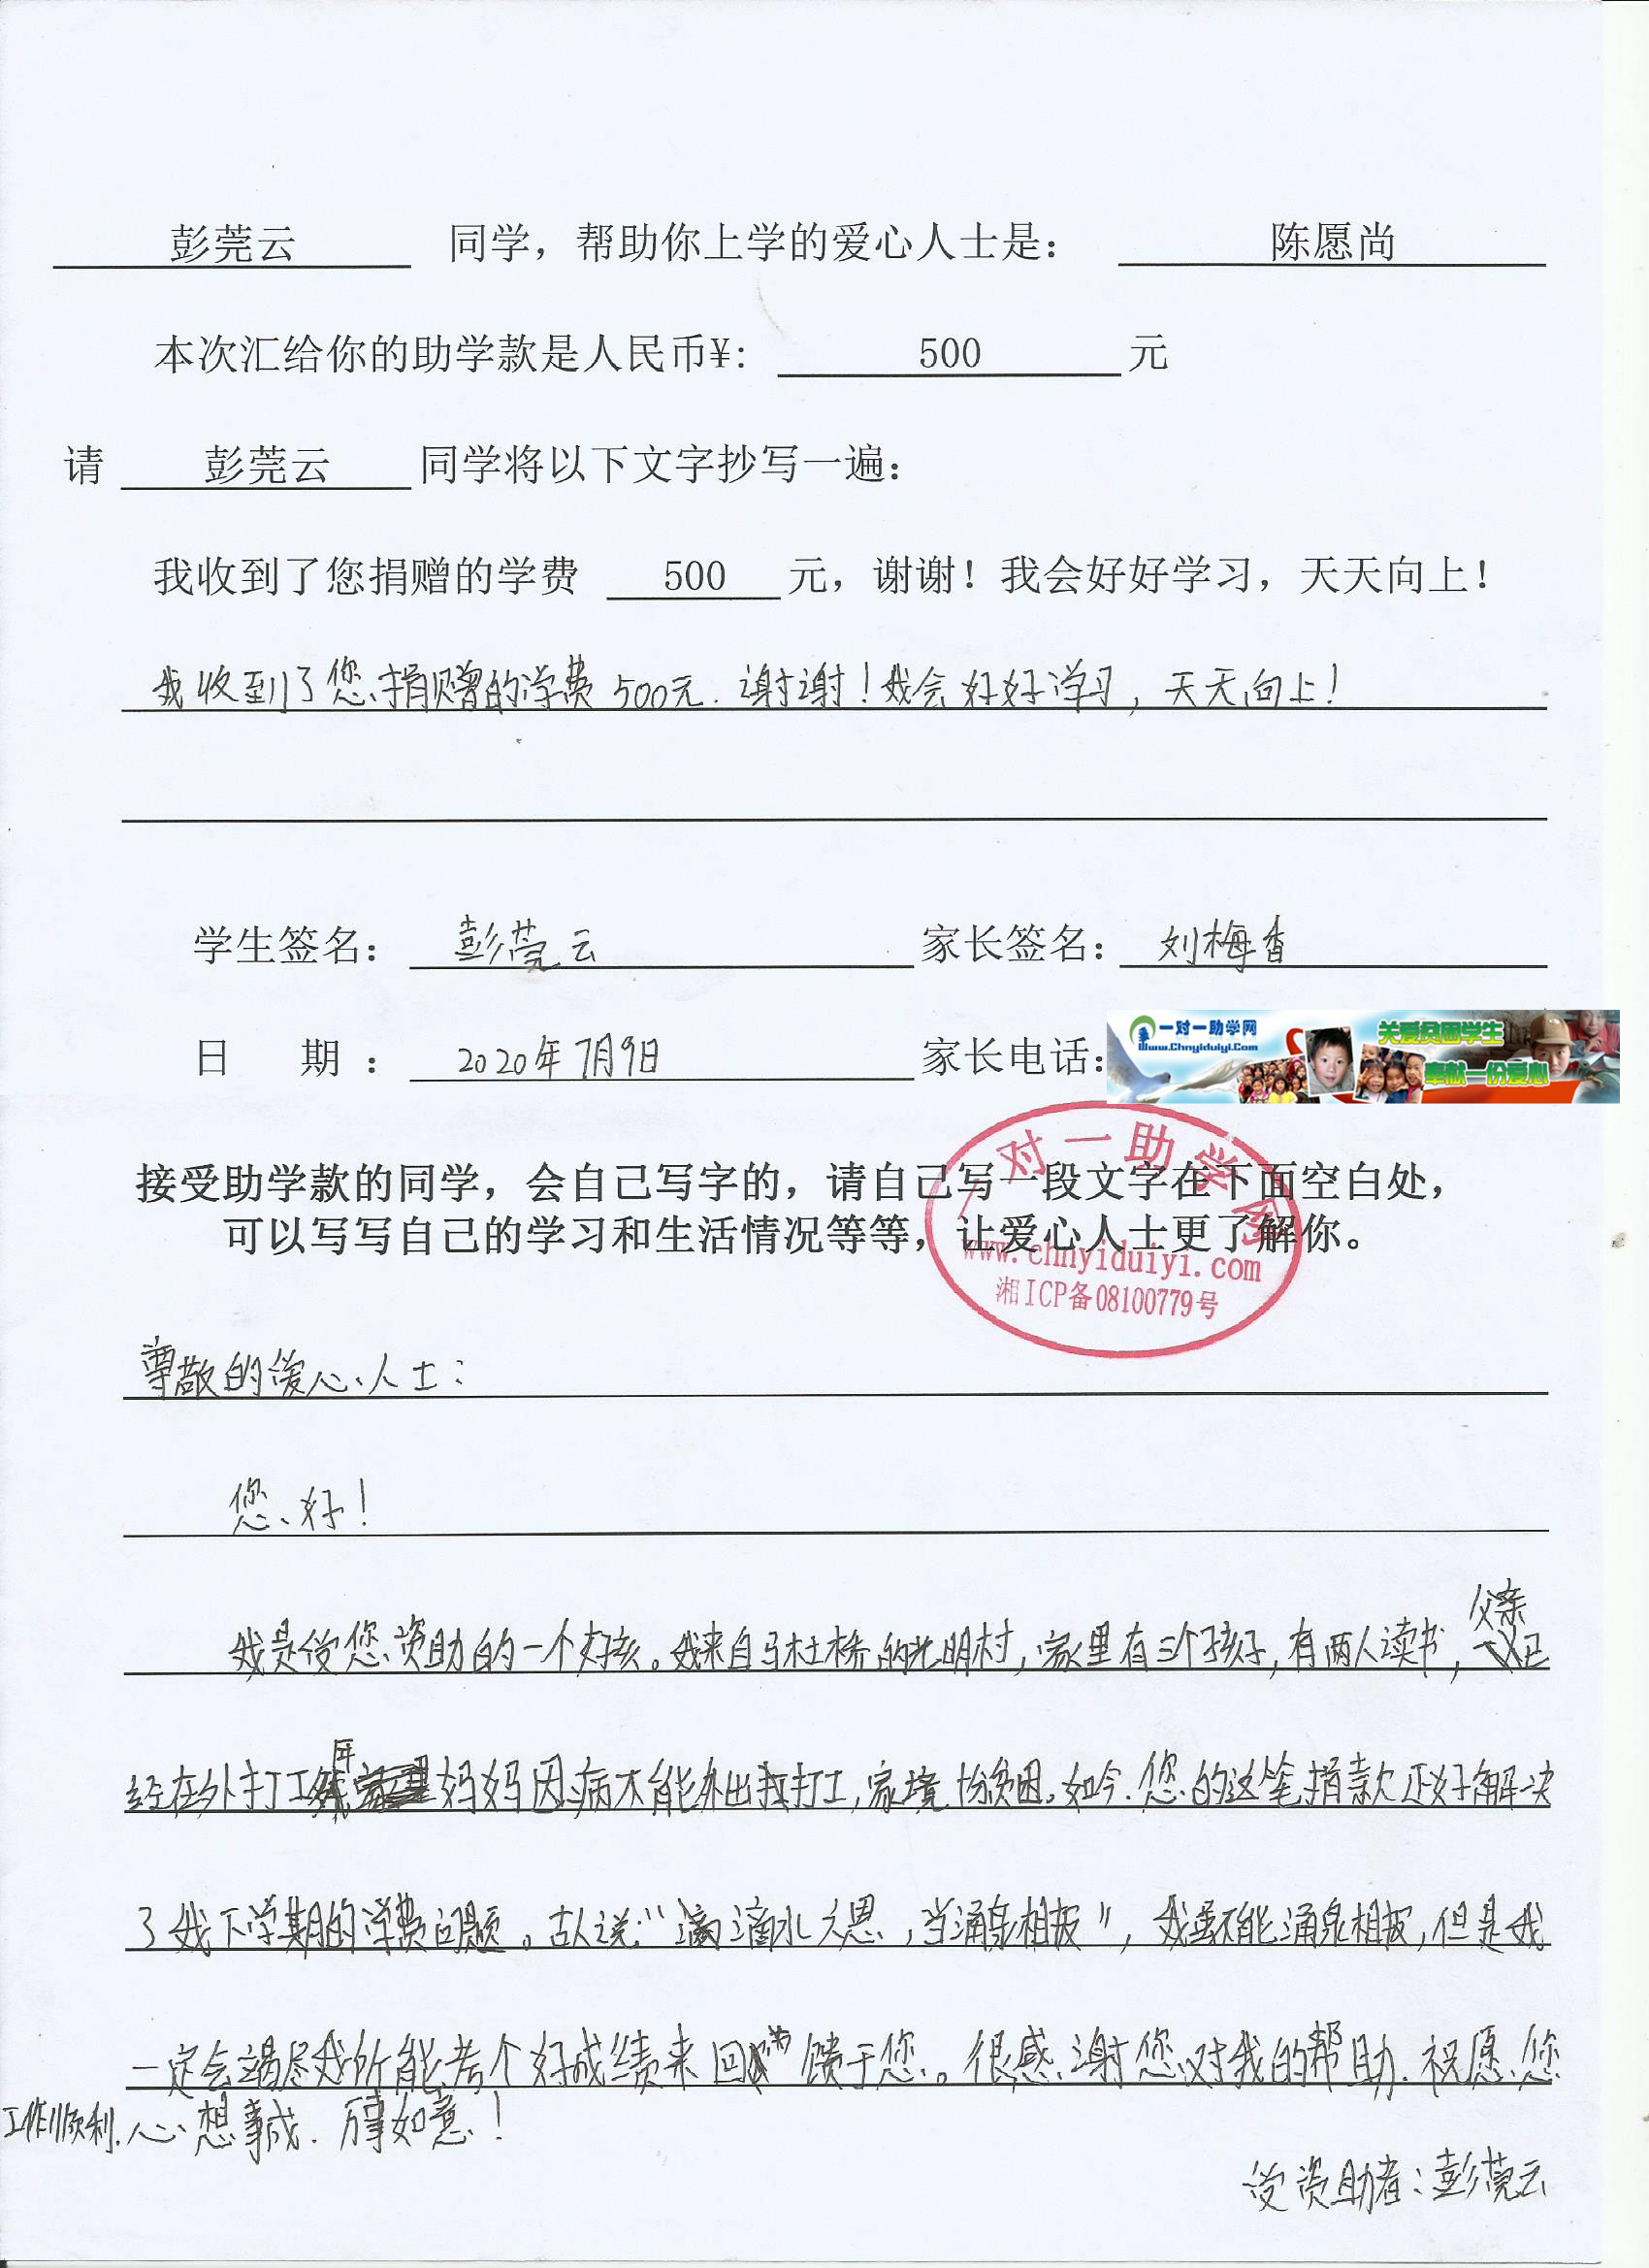 彭莞云 同学，帮助你上学的爱心人士是： 陈愿尚
本次汇给你的助学款是人民币¥: 500 元
请 彭莞云 同学将以下文字抄写一遍：
我收到了您捐赠的学费 500 元，谢谢！我会好好学习，天天向上！
我收到了您捐赠的学费500元．谢谢！我会好好学习，天天向上！
学生签名： 彭莞云 家长签名： 刘梅香
日 期： 2020年7月9日 家长电话：
一对一助学网
Www.Chnyiduiyi.Com
关爱贫困学生
奉献一份爱心
接受助学款的同学，会自己写字的，请自己写一段文字在下面空白处，
可以写写自己的学习和生活情况等等，让爱心人士更了解你。
一对一助学网
www.chnyiduiyi.com
湘ICP备08100779号
尊敬的爱心人士：
您好！
父亲
我是受您资助的一个女孩。我来自马杜桥的光明村，家里有三个孩子，有两人读书，已
年
经在外打工 妈妈因病不能外出打工，家境十分贫困。如今．您的这笔捐款正好解决
了我下学期的学费问题。古人说：“滴水之恩，当涌泉相报”，我虽不能涌泉相报，但是我
一定会竭尽我所能考个好成绩来回馈于您。很感谢您对我的帮助．祝愿您
工作顺利．心想事成．万事如意！
受资助者：彭莞云